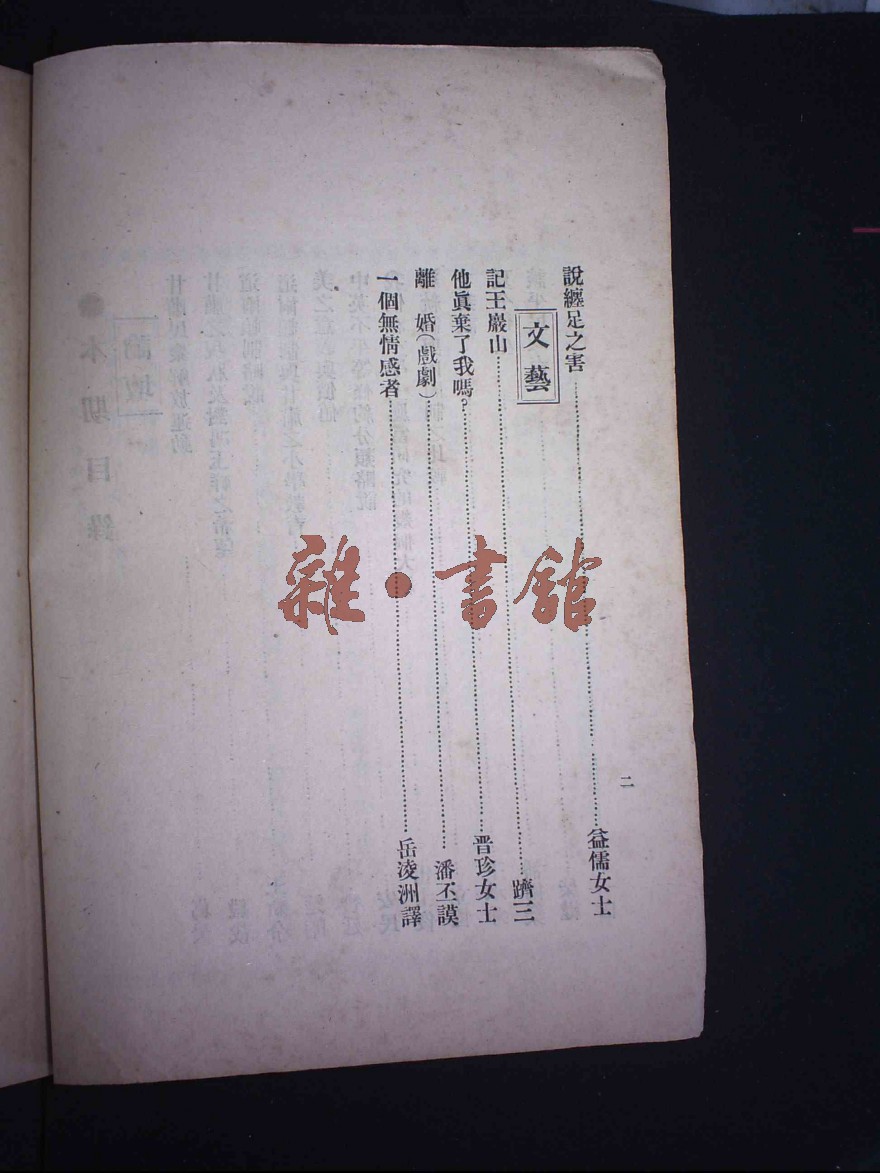 說纏足之害……益儒女士
文藝
記王巖山……躋三
他眞棄了我嗎?……晋珍女士
離婚(戲劇)……潘丕謨
一個無情感者……岳淩洲譯
二
雜·書館